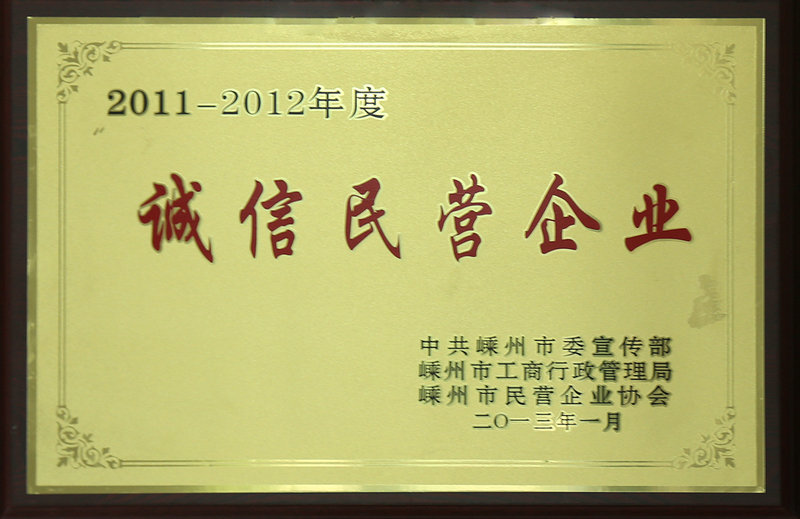 2011-2012年度
诚信民营企业
中共嵊州市委宣传部
嵊州市工商行政管理局
嵊州市民营企业协会
二〇一三年一月